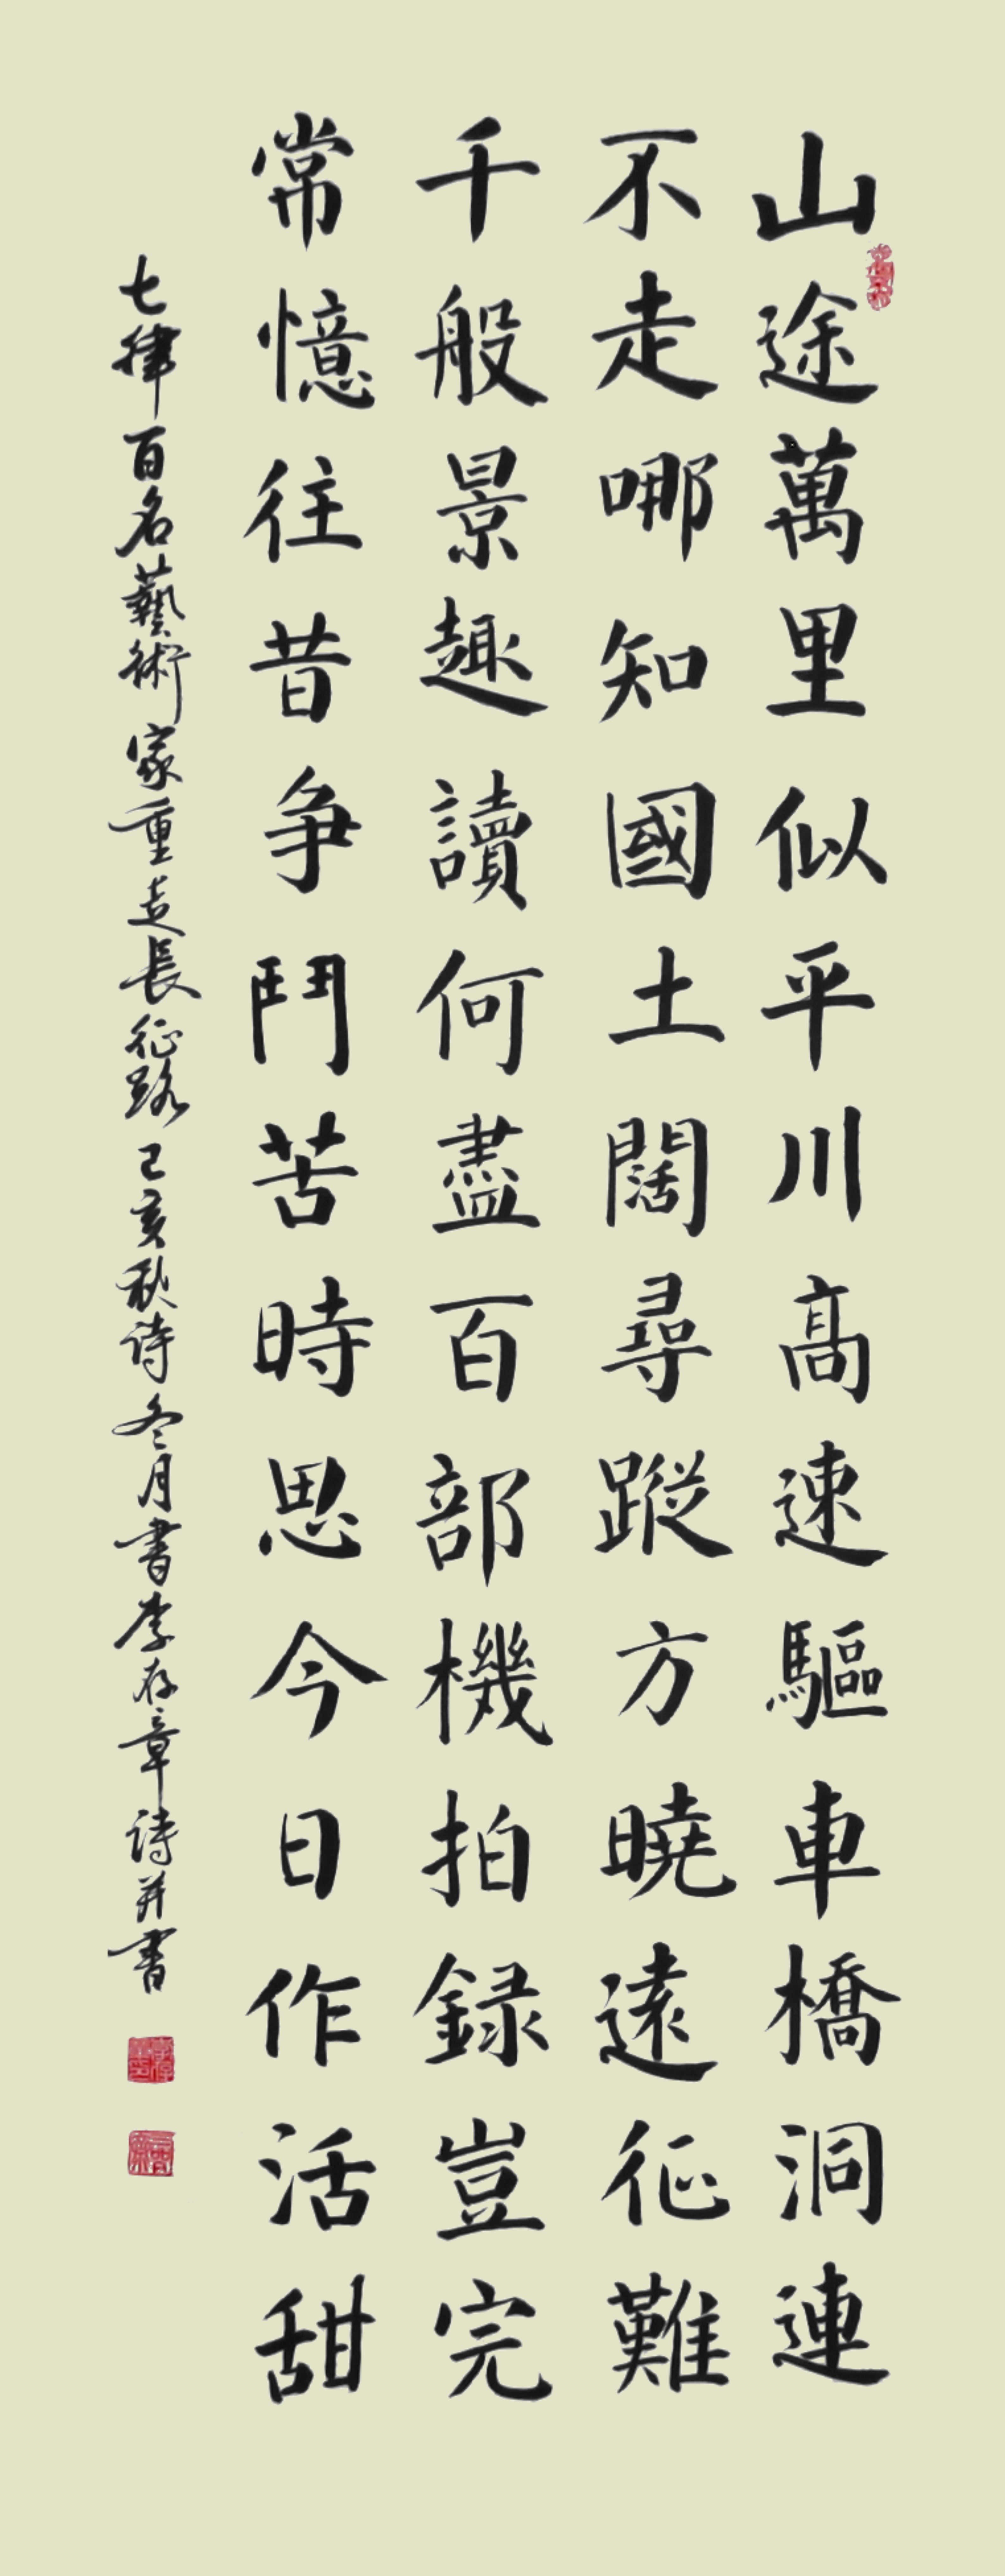 山途萬里似平川高速驅車橋洞連
不走哪知國土闊尋蹤方曉遠征難
千般景趣讀何盡百部機拍録豈完
常憶往昔争鬥苦時思今日作活甜
七律百名藝術家重走長征路己亥秋诗冬月書李存章诗并書